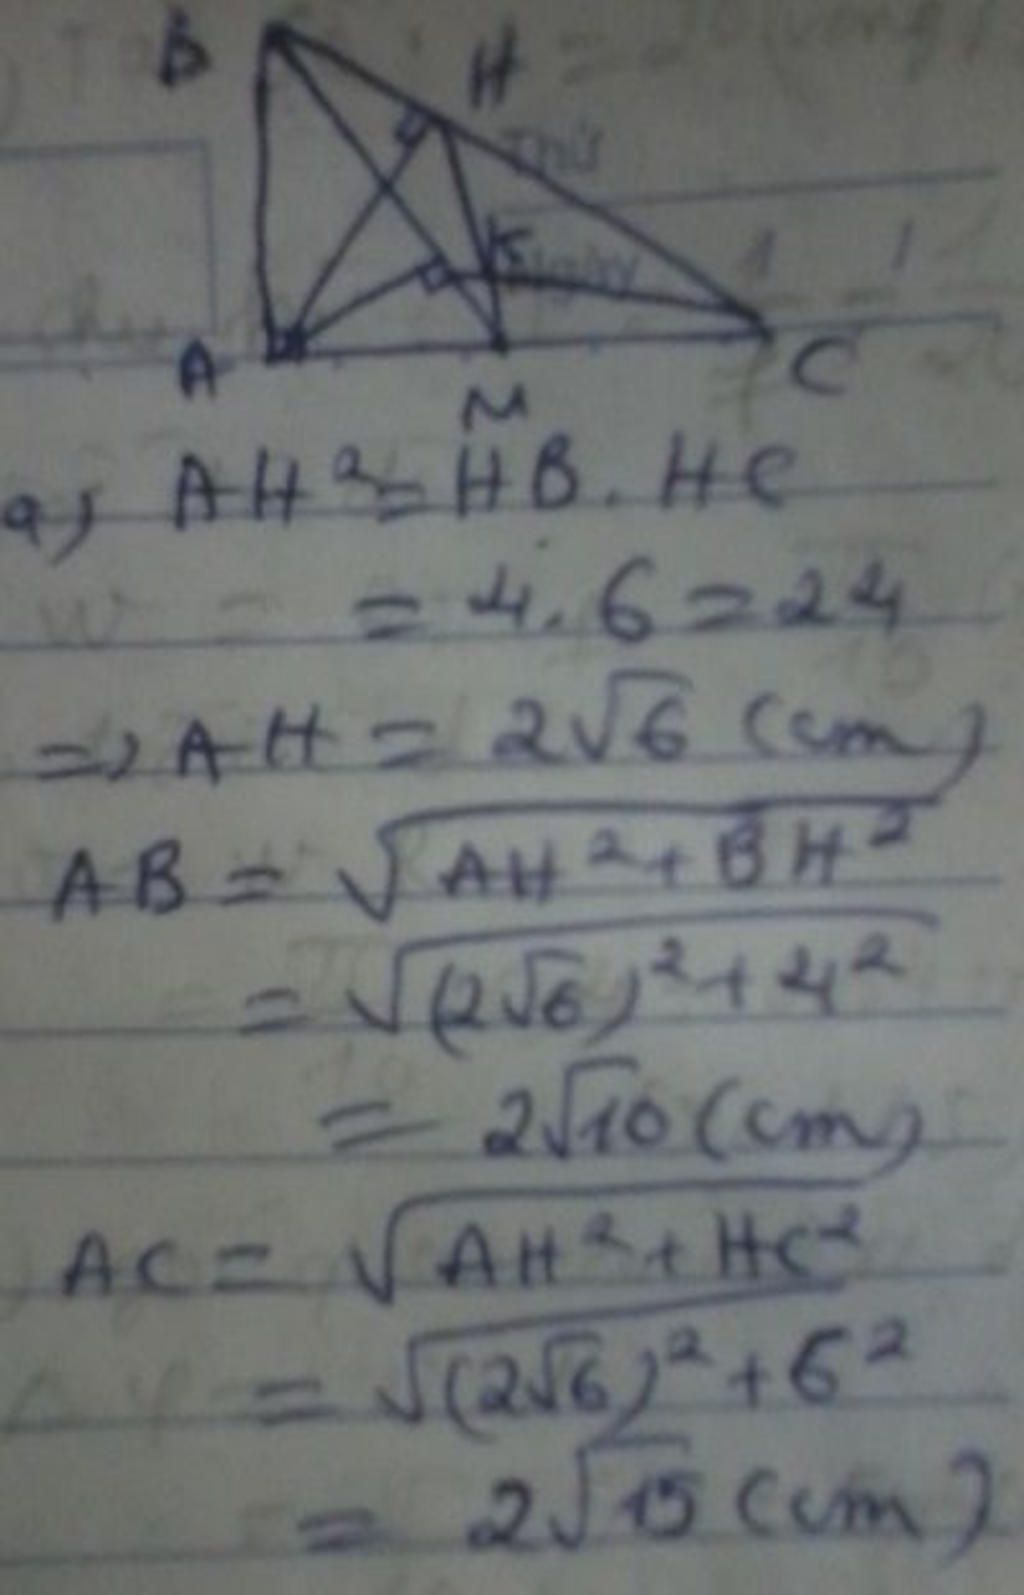 B
H
Thứ
K
Ngày
A
M
C
a, AH² = HB . HC
= 4 . 6 = 24
=> AH = 2√6 (cm)
AB = √AH² + BH²
= √(2√6)² + 4²
= 2√10 (cm)
AC = √AH² + HC²
= √(2√6)² + 6²
= 2√15 (cm)